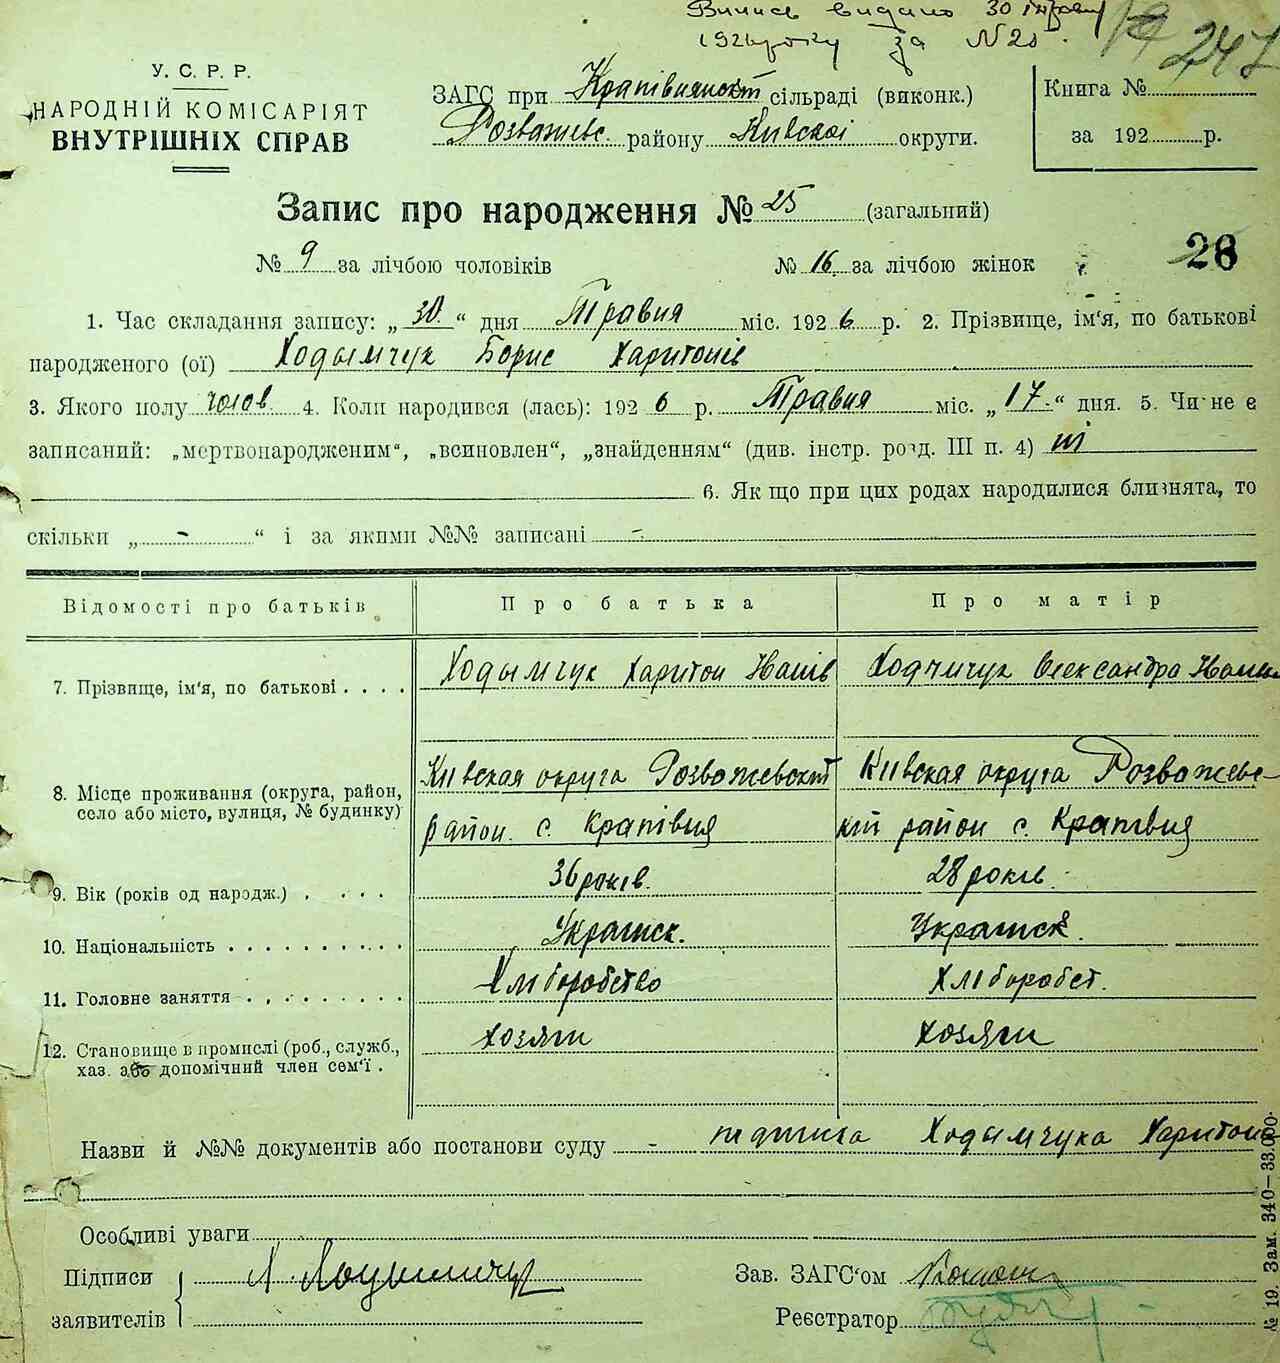 Випись видано 30 травня
1926 року за N 25.
247
У. С. Р. Р.
НАРОДНІЙ КОМІСАРІЯТ
ВНУТРІШНІХ СПРАВ
ЗАГС при Крапівнянскій сільраді (виконк.)
Розважевс. району Київскої округи.
Книга №
за 192 р.
Запис про народження № 25 (загальний)
№ 9 за лічбою чоловіків № 16 за лічбою жінок
26
1. Час складання запису: „30.“ дня Травня міс. 1926 р. 2. Прізвище, ім'я, по батькові
народженого (ої) Ходымчук Борис Харитонів
3. Якого полу чолов. 4. Коли народився (лась): 1926 р. Травня міс. „17.“ дня. 5. Чи не є
записаний: „мертвонародженим“, „всиновлен“, „знайденням“ (див. інстр. розд. III п. 4) ні
6. Як що при цих родах народилися близнята, то
скільки „ - “ і за якими №№ записані -
Відомості про батьків Про батька Про матір
7. Прізвище, ім'я, по батькові . . . . Ходымчук Харитон Іванів Ходимчук Олександра
8. Місце проживання (округа, район, село або місто, вулиця, № будинку) Київская округа Розважевскій Київская округа Розважевс-
район. с. Крапівня кій район с. Крапівня
9. Вік (років од народж.) . . . . 36 років. 28 років.
10. Національність . . . . . . . . . . Украінск. Украінск.
11. Головне заняття . . . . . . . . . Хліборобство Хліборобст.
12. Становище в промислі (роб., служб., хаз. або допомічний член сем'ї . Хозяїн Хозяїн
Назви й №№ документів або постанови суду - підписа Ходымчука Харитона
Особливі уваги
Підписи
заявителів
Зав. ЗАГС'ом
Реєстратор
№ 19. Зам. 340—33.000.